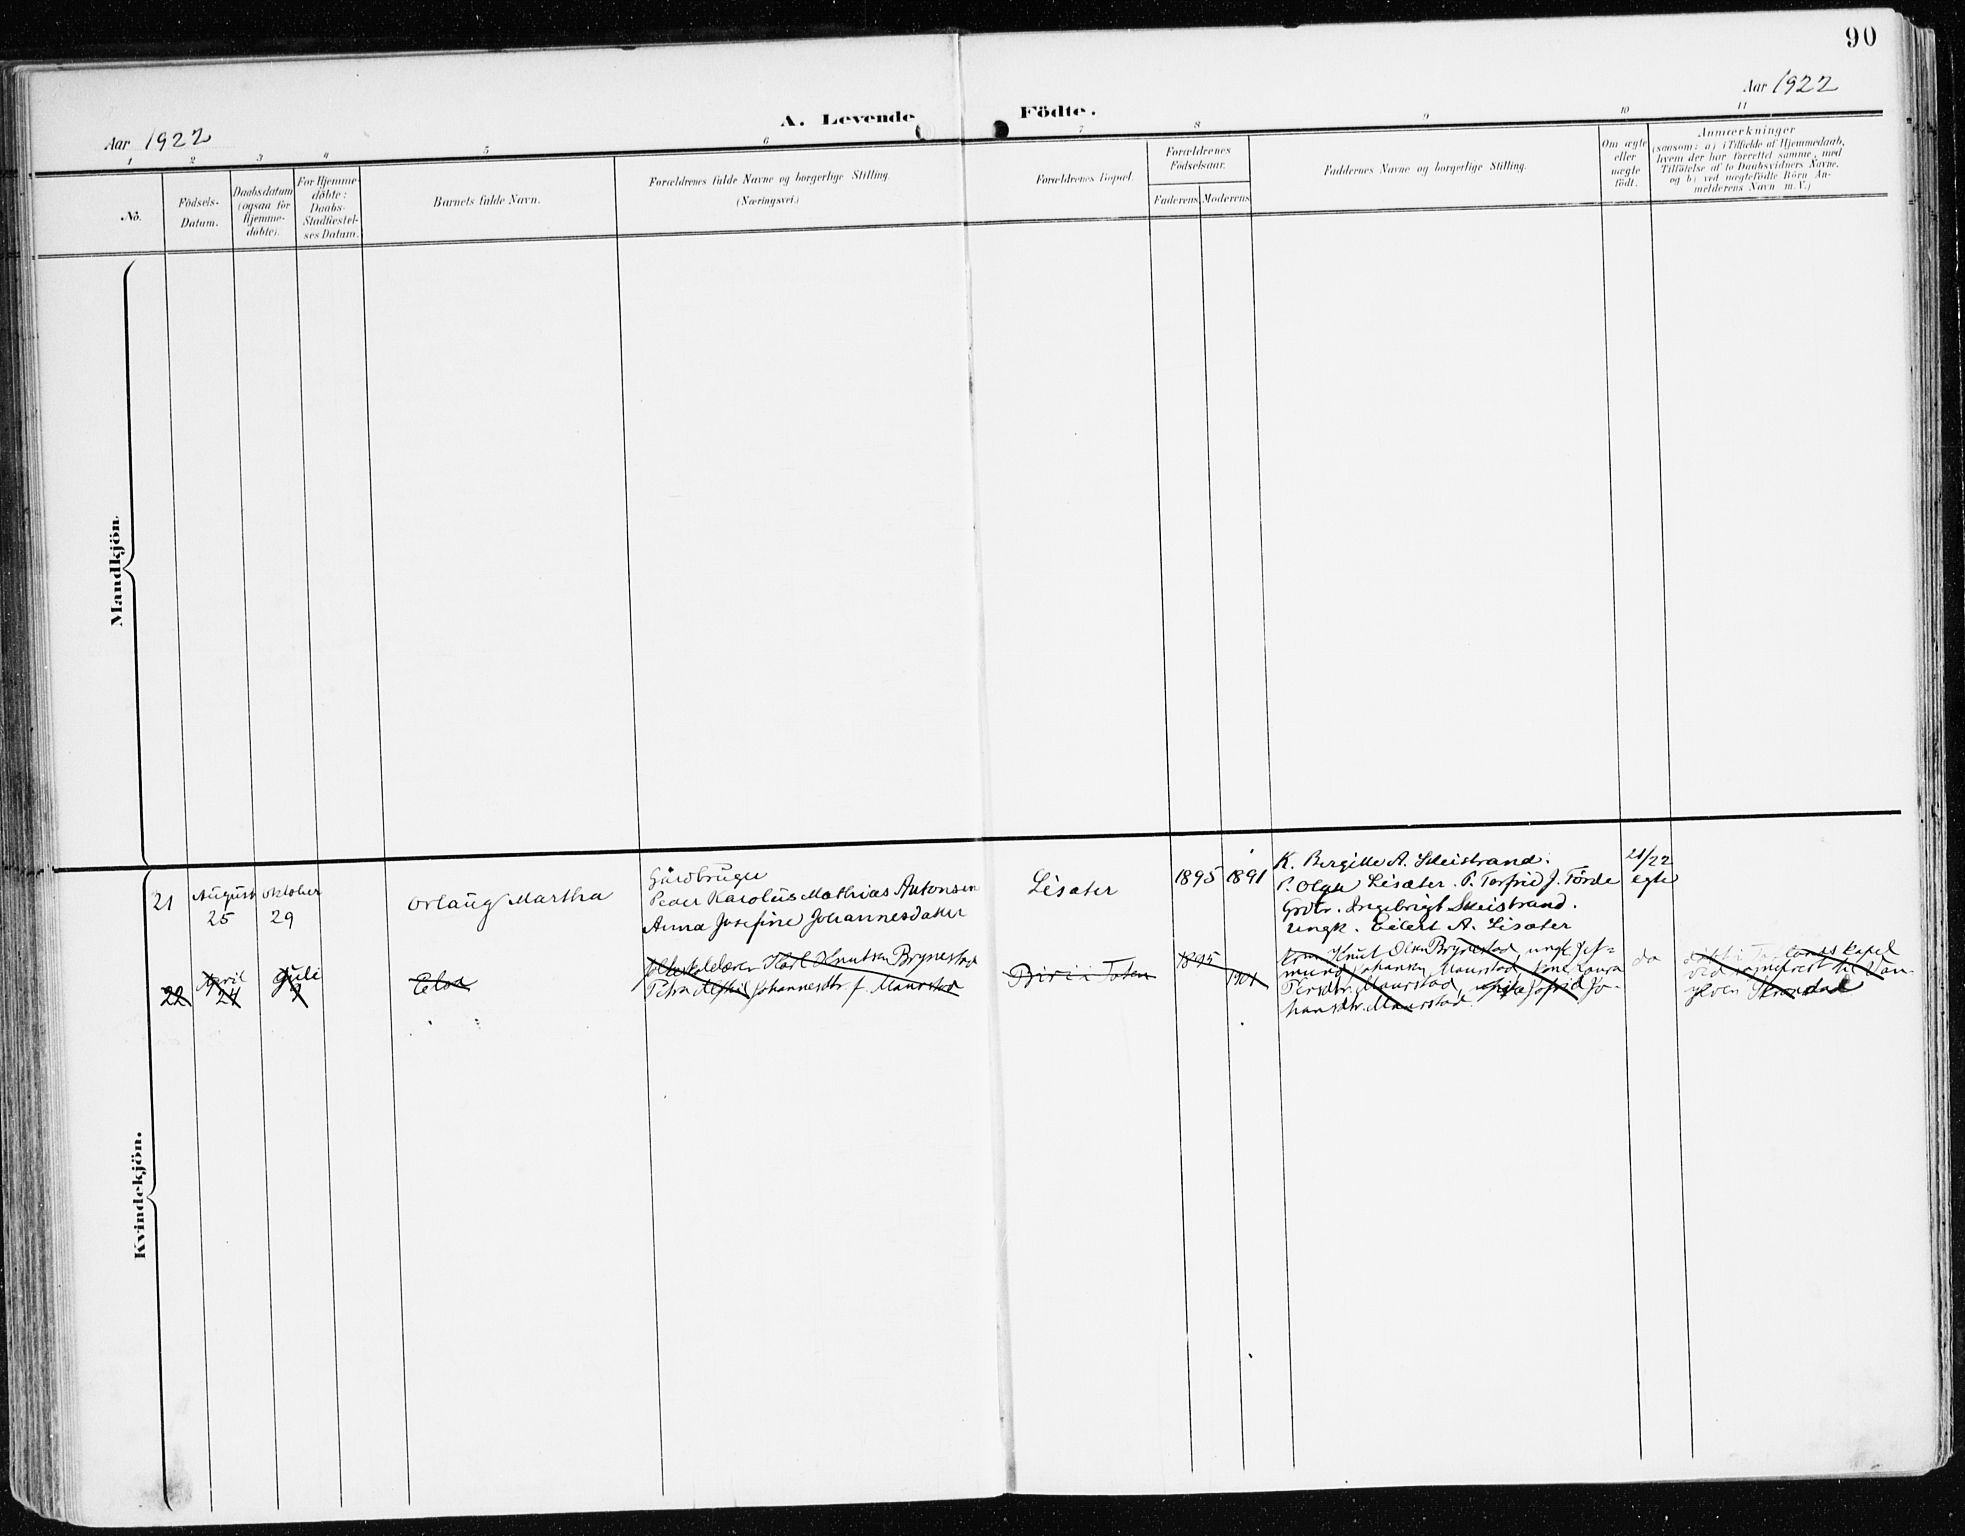 90
Aar 1922
A. Levende Födte.
Aar 1922
1 2 3 4 5 6 7 8 9 10 11
Nö.
Födsels-
Datum.
Daabsdatum
(ogsaa for
Hjemme-
döbte).
For Hjemme-
döbte:
Daabs-
Stadfæstel-
ses Datum.
Barnets fulde Navn.
Forældrenes fulde Navne og borgerlige Stilling.
(Næringsvei.)
Forældrenes Bopæl.
Forældrenes
Födselsaar.
Faderens. Moderens.
Faddernes Navne og borgerlige Stilling.
Om ægte
eller
uægte
födt.
Anmærkninger
(saasom: a) i Tilfælde af Hjemmedaab,
hvem der har forrettet samme, med
Tilföielse af to Daabsvidners Navne.
og b) ved uægtefödte Börn An-
melderens Navn m. V.)
Mandkjön.
Kvindekjön.
21
August
25
Oktober
29
Orlaug Martha
Gårdbruger
Peder Karolus Mathias Antonsen
Anna Josefine Johannesdatter
Lisæter
1895 1891
K. Bergitte A. Skeistrand.
P. Olga Lisæter. P. Torfrid J. Förde
Grdbr. Ingebrigt Skeistrand.
Ungk. Eilert A. Lisæter
21/22
egte
22
April
24
Juli
2
Elsa
Karl Knutsen Brynestad
Petra Johannesdtr. f. Maurstad
Biri Toten
1895
1901
Knut Brynestad, ungk
Johansen Maurstad,
Persdtr. Maurstad,
hansdtr. Maurstad
do
kapel